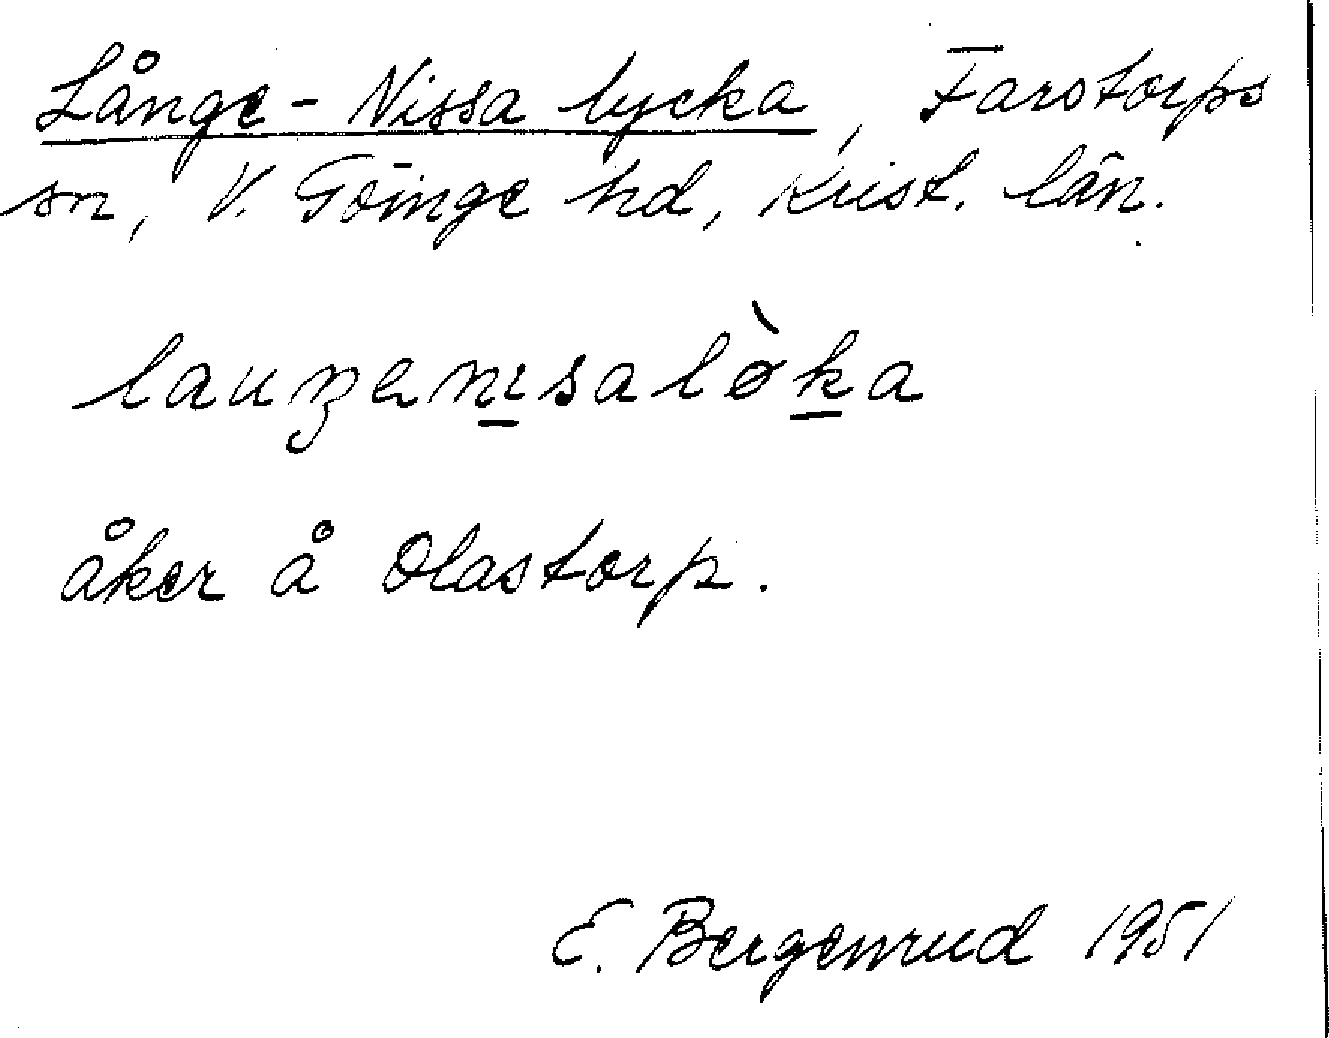 Långe-Nissa lycka, Farstorps
sn, V. Göinge hd, Krist. län.
lauŋenısalø̀ka
åker å Olastorp.
E. Bergenrud 1951